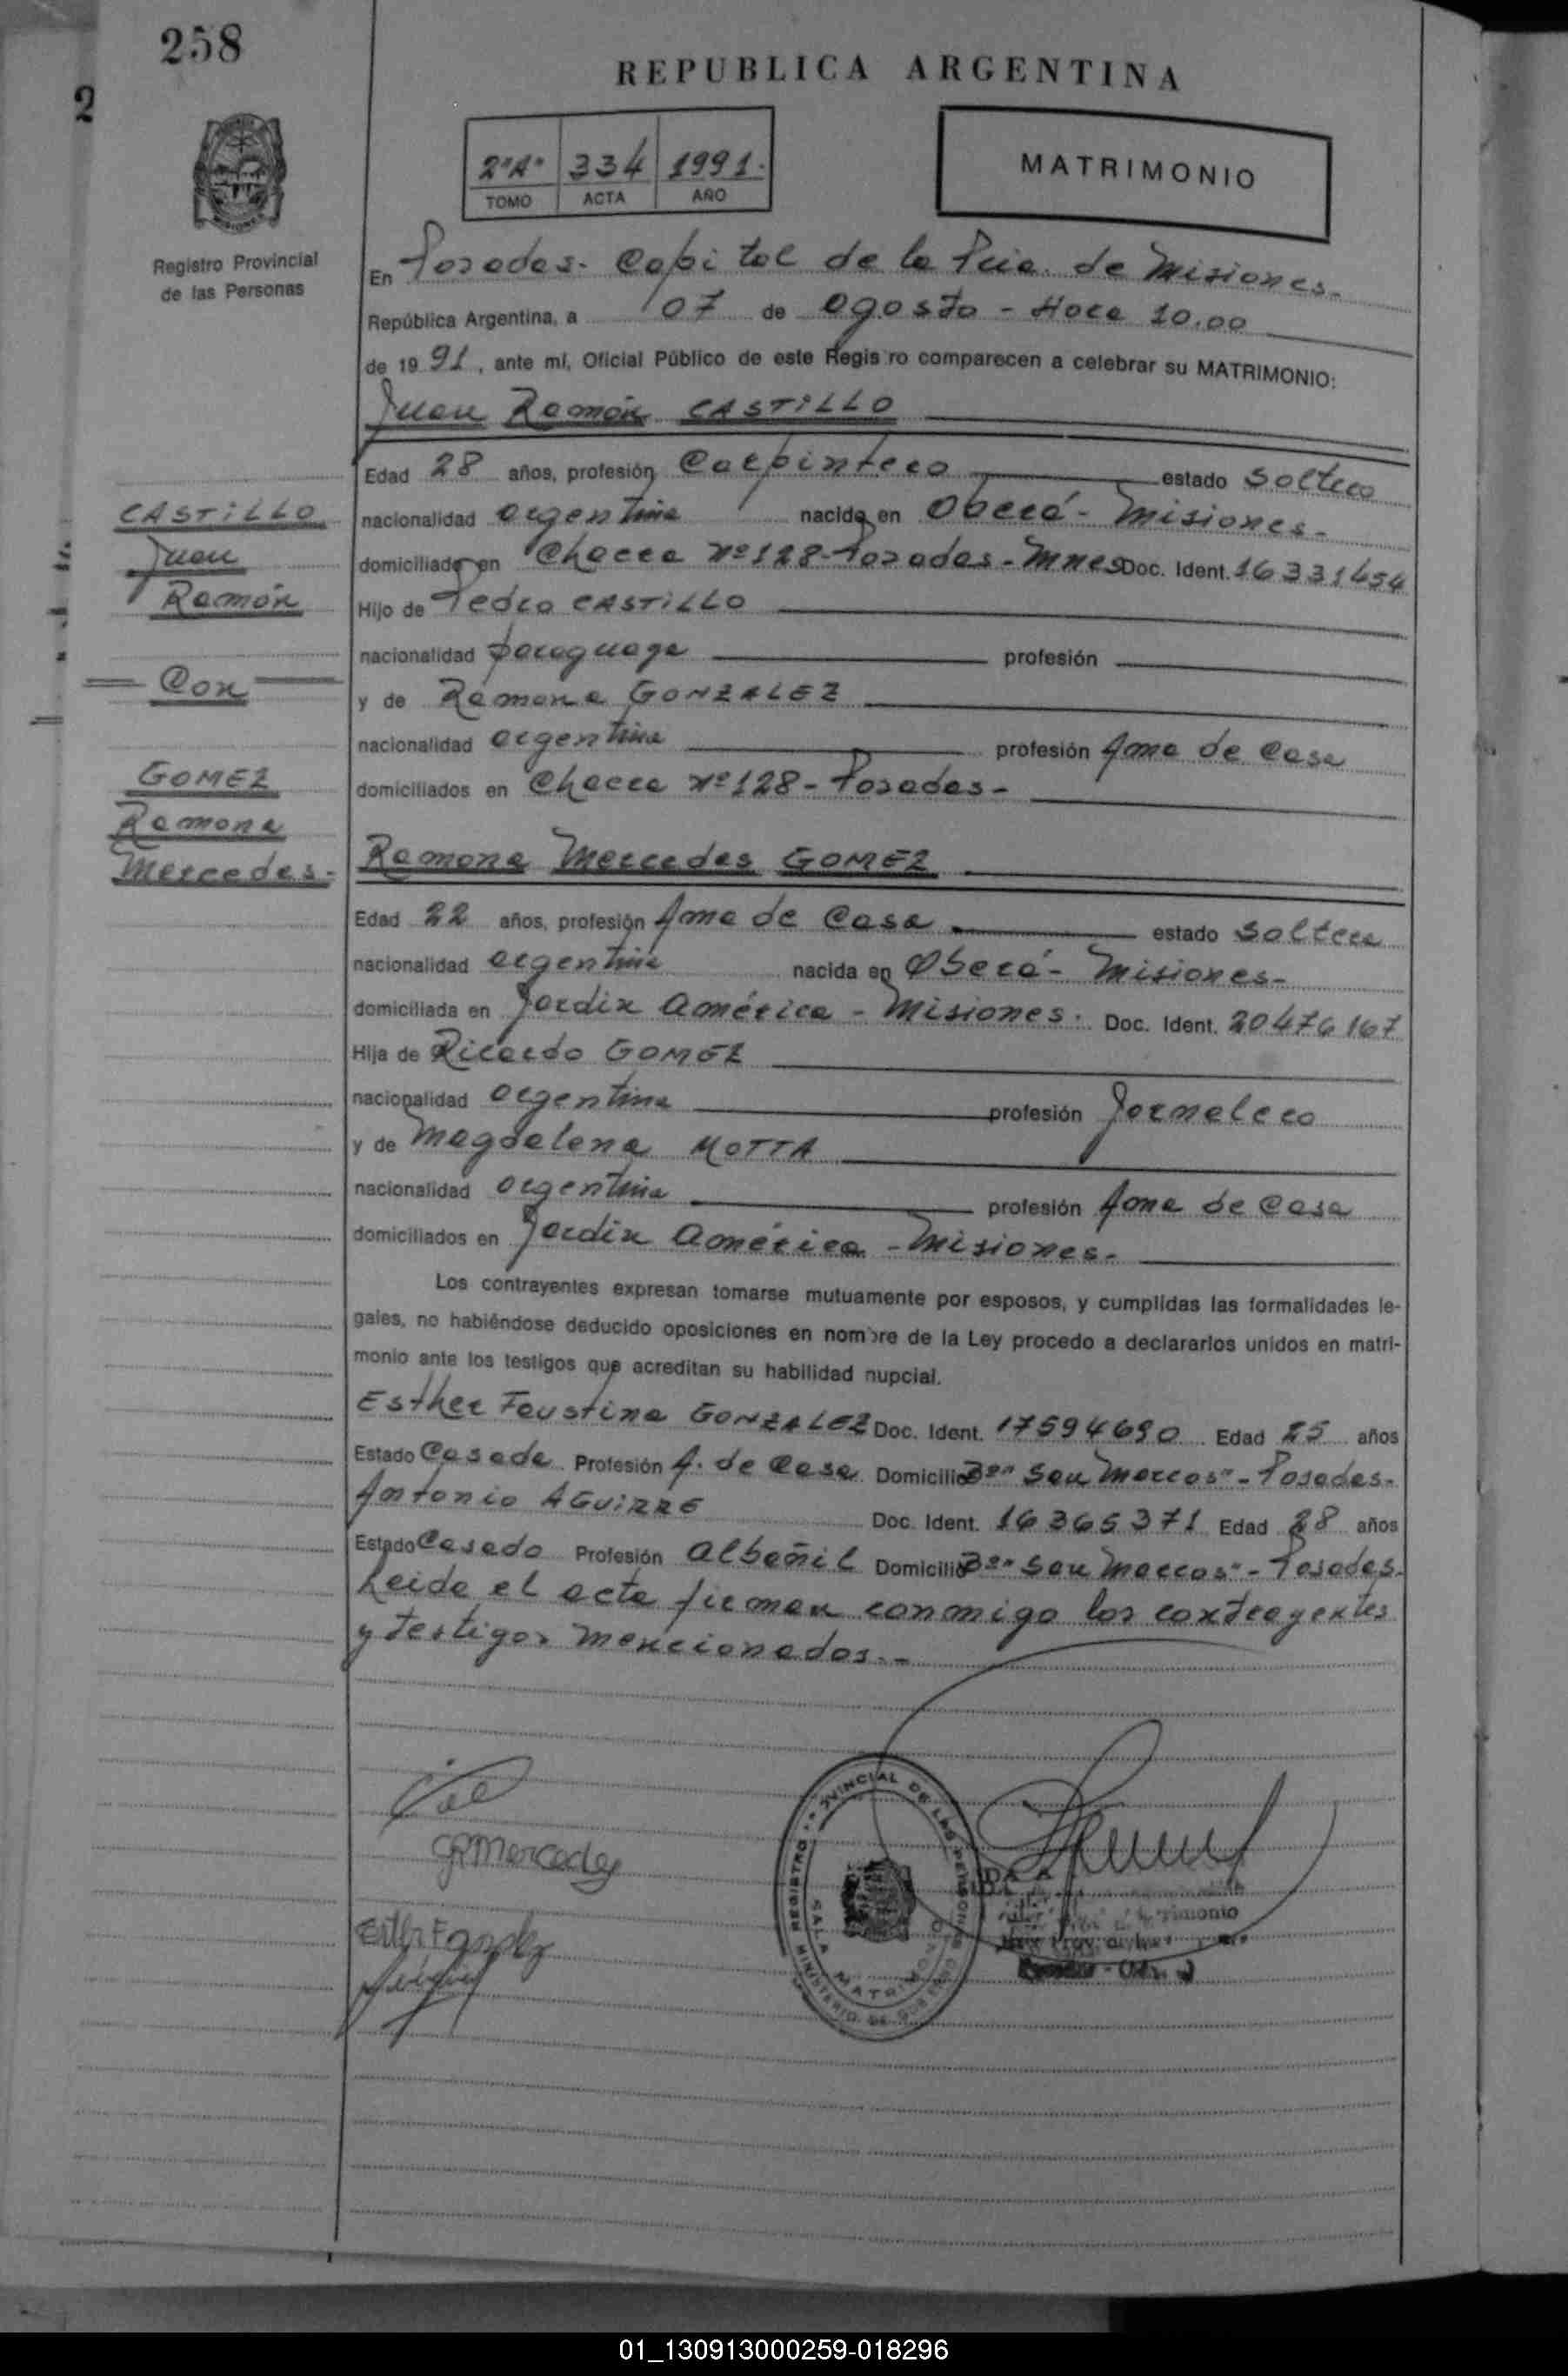 258
2
REPUBLICA ARGENTINA
2ºAº 334 1991.
TOMO ACTA AÑO
MATRIMONIO
Registro Provincial
de las Personas
En Posadas. Capital de la Pcia. de Misiones.
República Argentina, a 07 de agosto - Hora 10.00
de 1991, ante mí, Oficial Público de este Regis ro comparecen a celebrar su MATRIMONIO:
Juan Ramón CASTILLO
Edad 28 años, profesión Carpintero estado Soltero
CASTILLO
Juan
Ramón
Con
GOMEZ
Ramona
Mercedes.
nacionalidad argentina nacido en Oberá - Misiones.
domiciliado en Chacra Nº128-Posadas-Mnes Doc. Ident. 16331454
Hijo de Pedro CASTILLO
nacionalidad paraguaya profesión
y de Ramona GONZALEZ
nacionalidad argentina profesión Ama de Casa
domiciliados en Chacra Nº128-Posadas-
Ramona Mercedes GOMEZ
Edad 22 años, profesión Ama de Casa estado Soltera
nacionalidad argentina nacida en Oberá - Misiones-
domiciliada en Jardín América - Misiones. Doc. Ident. 20476167
Hija de Ricardo GOMEZ
nacionalidad argentina profesión Jornalero
y de Magdalena MOTTA
nacionalidad argentina profesión Ama de Casa
domiciliados en Jardín América - Misiones-
Los contrayentes expresan tomarse mutuamente por esposos, y cumplidas las formalidades le-
gales, no habiéndose deducido oposiciones en nombre de la Ley procedo a declararlos unidos en matri-
monio ante los testigos que acreditan su habilidad nupcial.
Esther Faustina GONZALEZ Doc. Ident. 17594690 Edad 25 años
Estado Casada Profesión A. de Casa Domicilio Bº" San Marcos"-Posadas-
Antonio AGUIRRE Doc. Ident. 16365371 Edad 28 años
Estado Casado Profesión Albañil Domicilio Bº" San Marcos"-Posadas-
Leida el acta firman conmigo los contrayentes
y testigos mencionados.-
GRMercedes
REGISTRO PROVINCIAL DE LAS PERSONAS
SALA MATRIMONIO
MINISTERIO DE GOBIERNO
01_130913000259-018296